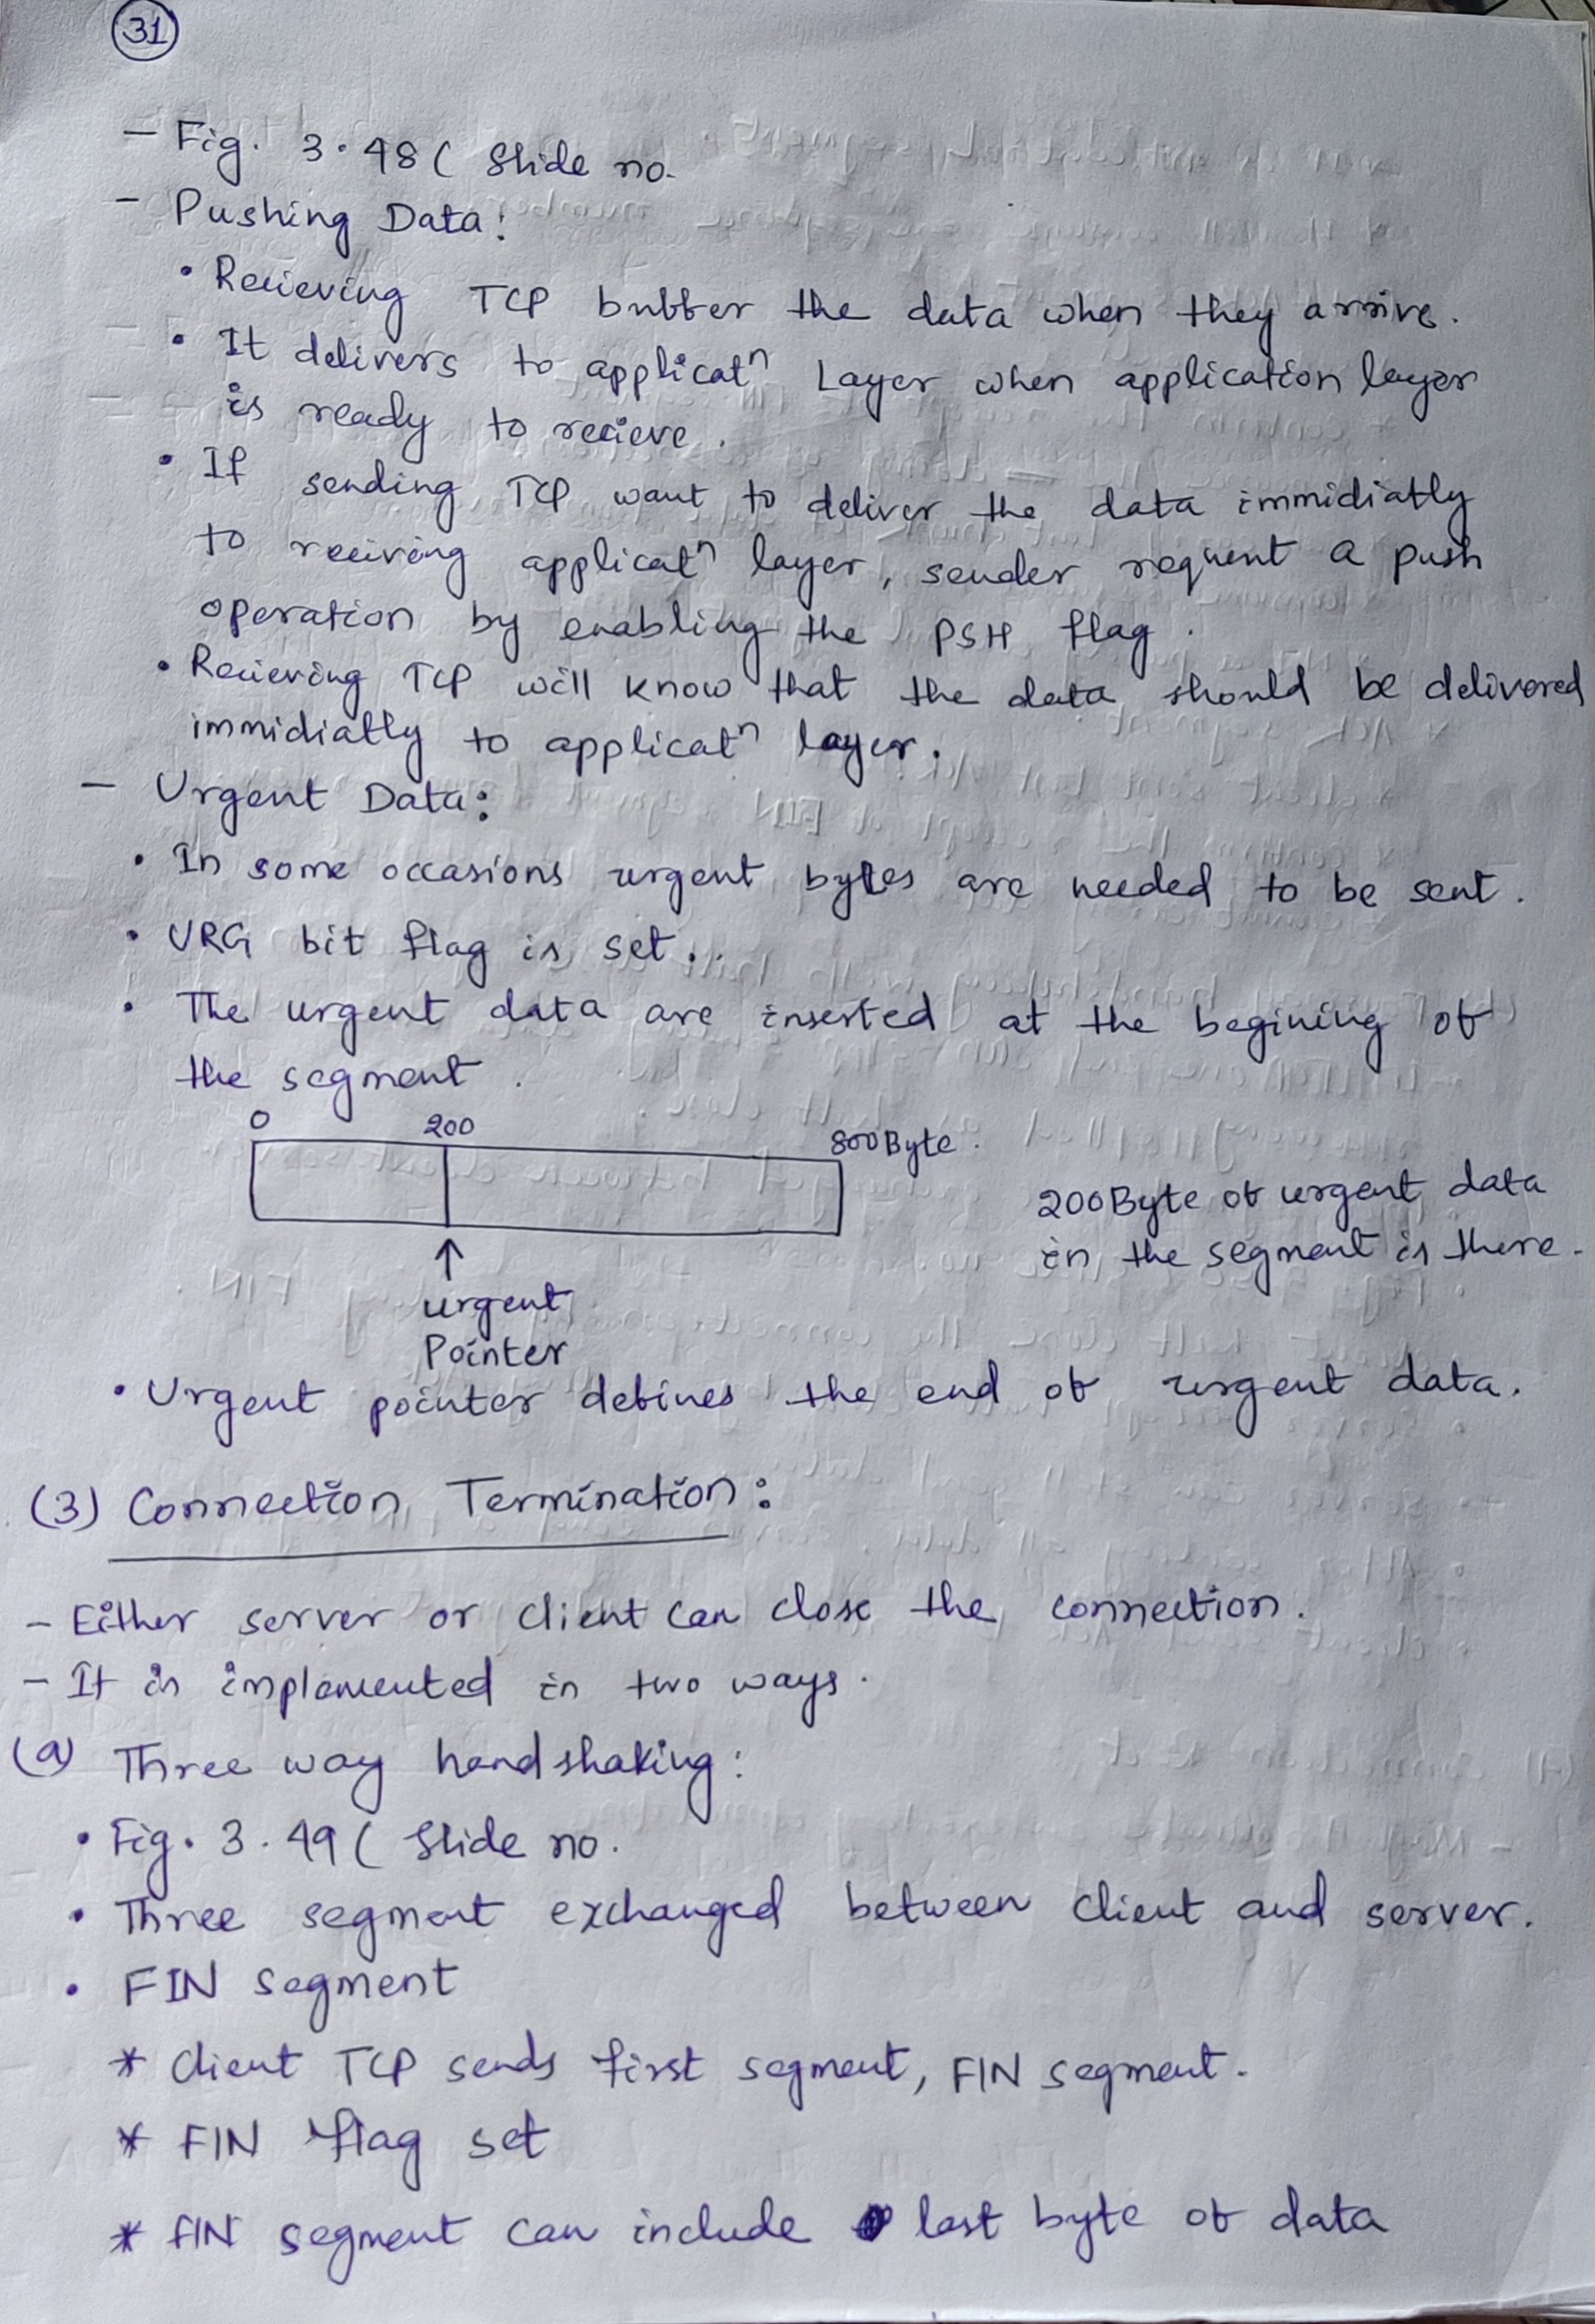 31
- Fig. 3.48 ( Slide no.
- Pushing Data:
• Recieving TCP buffer the data when they arrive.
• It delivers to applicatⁿ Layer when application layer
is ready to recieve.
• If sending TCP want to deliver the data immidiatly
to receiving applicatⁿ layer, sender request a push
operation by enabling the PSH flag.
• Recieving TCP will know that the data should be delivered
immidiatly to applicatⁿ layer.
- Urgent Data:
• In some occasions urgent bytes are needed to be sent.
• URG bit flag is set.
• The urgent data are inserted at the begining of
the segment.
0 200 800 Byte.
200 Byte of urgent data
in the segment is there.
↑
urgent
Pointer
• Urgent pointer defines the end of urgent data.
(3) Connection Termination:
- Either server or client can close the connection.
- It is implemented in two ways.
(a) Three way handshaking:
• Fig. 3.49 ( Slide no.
• Three segment exchanged between client and server.
• FIN segment
* Client TCP sends first segment, FIN segment.
* FIN flag set
* FIN segment can include last byte of data